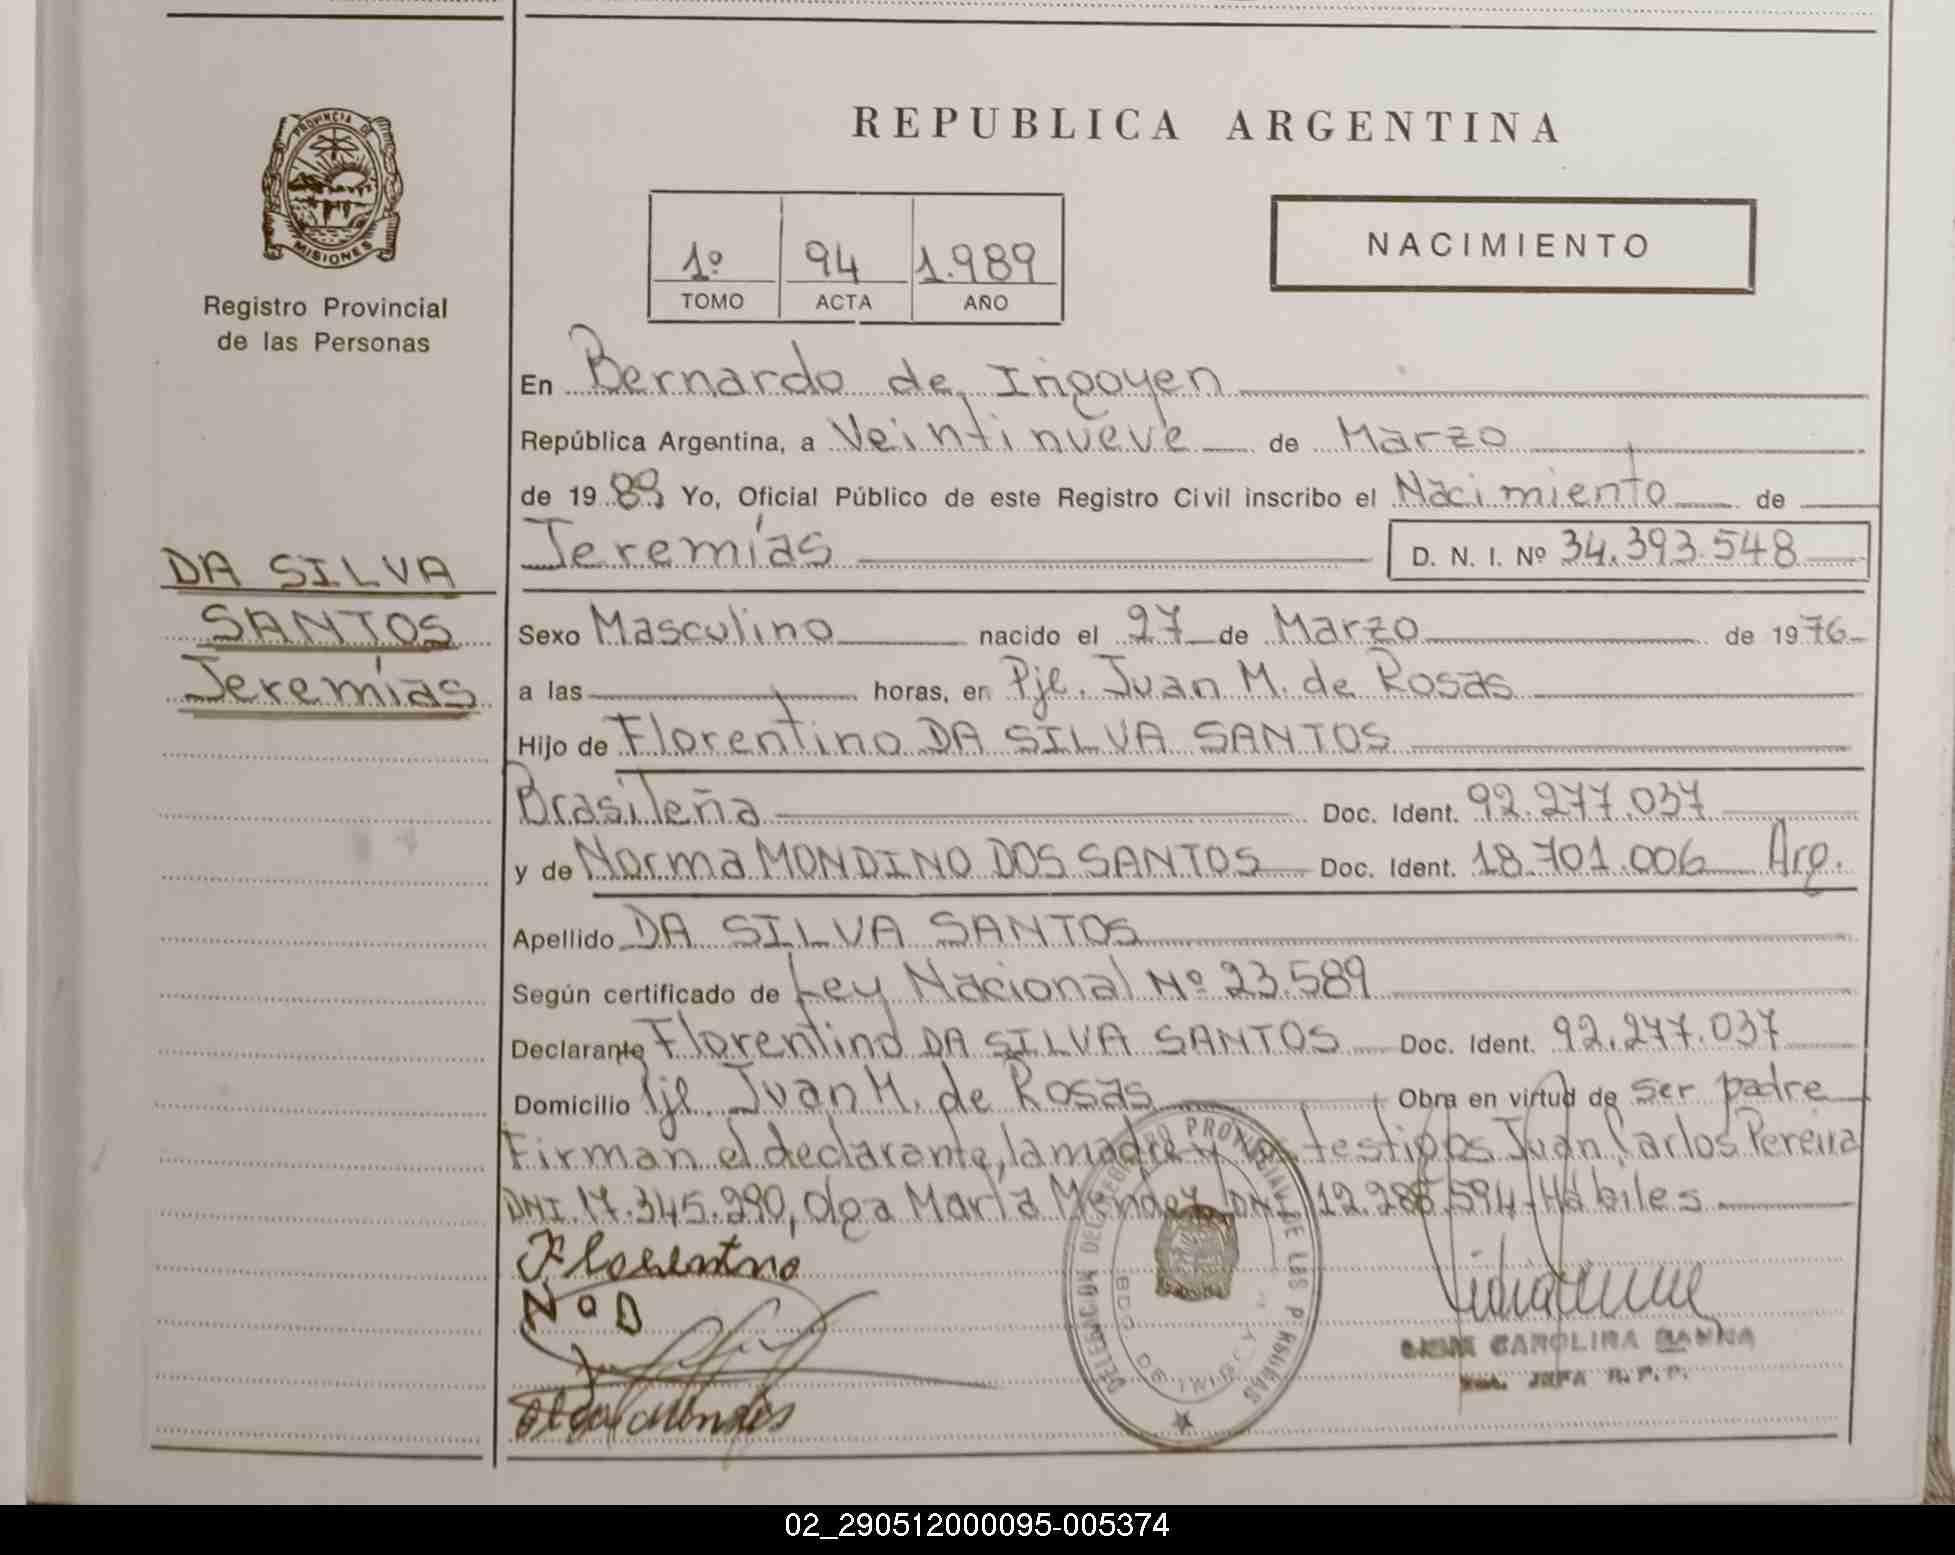 PROVINCIA DE
MISIONES
Registro Provincial
de las Personas
DA SILVA
SANTOS
Jeremías
REPUBLICA ARGENTINA
1º 94 1.989
TOMO ACTA AÑO
NACIMIENTO
En Bernardo de Irigoyen
República Argentina, a Veintinueve de Marzo
de 19 89 Yo, Oficial Público de este Registro Civil inscribo el Nacimiento de
Jeremías D. N. I. Nº 34.393.548
Sexo Masculino nacido el 27 de Marzo de 1976
a las horas, en Pje. Juan M. de Rosas
Hijo de Florentino DA SILVA SANTOS
Brasileña Doc. Ident. 92.277.037
y de Norma MONDINO DOS SANTOS Doc. Ident. 18.701.006 Arg.
Apellido DA SILVA SANTOS
Según certificado de Ley Nacional Nº 23.589
Declarante Florentino DA SILVA SANTOS Doc. Ident. 92.277.037
Domicilio Pje. Juan M. de Rosas Obra en virtud de ser padre
Firman el declarante, la madre y los testigos Juan Carlos Pereira
DNI. 17.345.290, Olga María Mendez DNI 12.285.594 - Hábiles
Florentino
N o D
Olga Mendes
DELEGACION DEL REGISTRO PROVINCIAL DE LAS PERSONAS
CAROLINA
JEFA R.P.P.
02_290512000095-005374